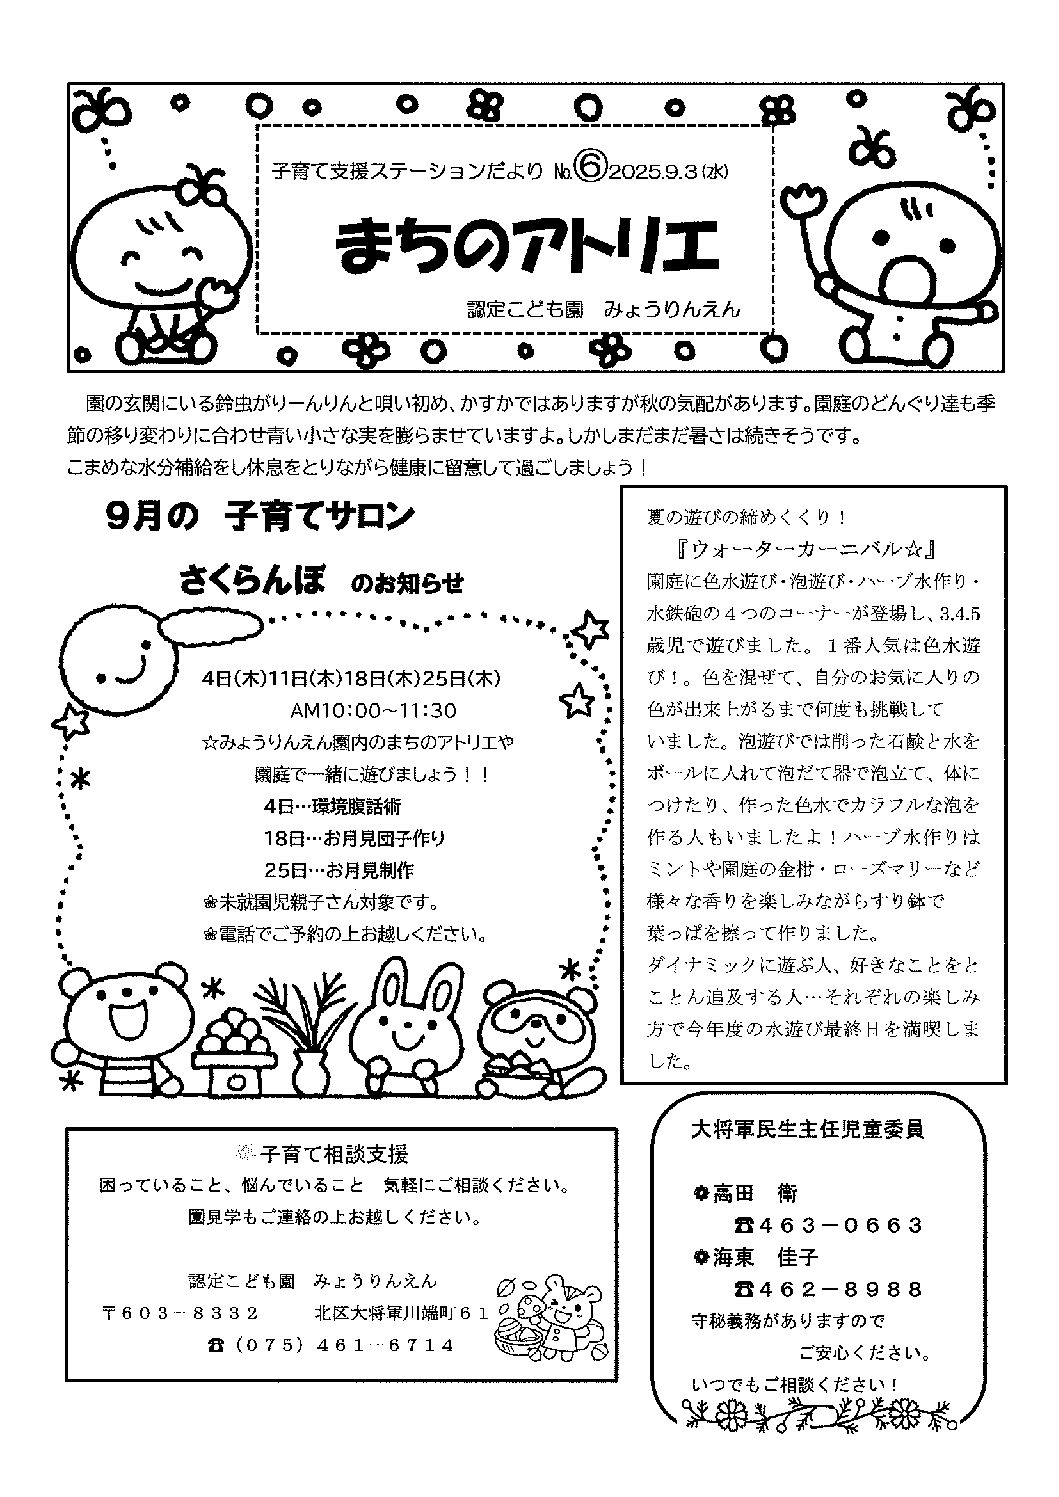 子育て支援ステーションだより №⑥2025.9.3(水)
まちのアトリエ
認定こども園　みょうりんえん
園の玄関にいる鈴虫がりーんりんと唄い初め、かすかではありますが秋の気配があります。園庭のどんぐり達も季
節の移り変わりに合わせ青い小さな実を膨らませていますよ。しかしまだまだ暑さは続きそうです。
こまめな水分補給をし休息をとりながら健康に留意して過ごしましょう！
9月の　子育てサロン
さくらんぼ　のお知らせ
4日(木)11日(木)18日(木)25日(木)
AM10：00～11：30
☆みょうりんえん園内のまちのアトリエや
園庭で一緒に遊びましょう！！
4日…環境腹話術
18日…お月見団子作り
25日…お月見制作
❀未就園児親子さん対象です。
❀電話でご予約の上お越しください。
夏の遊びの締めくくり！
『ウォーターカーニバル☆』
園庭に色水遊び・泡遊び・ハーブ水作り・
水鉄砲の４つのコーナーが登場し、3.4.5
歳児で遊びました。１番人気は色水遊
び！。色を混ぜて、自分のお気に入りの
色が出来上がるまで何度も挑戦して
いました。泡遊びでは削った石鹸と水を
ボールに入れて泡だて器で泡立て、体に
つけたり、作った色水でカラフルな泡を
作る人もいましたよ！ハーブ水作りは
ミントや園庭の金柑・ローズマリーなど
様々な香りを楽しみながらすり鉢で
葉っぱを擦って作りました。
ダイナミックに遊ぶ人、好きなことをと
ことん追及する人…それぞれの楽しみ
方で今年度の水遊び最終日を満喫しま
した。
子育て相談支援
困っていること、悩んでいること　気軽にご相談ください。
園見学もご連絡の上お越しください。
認定こども園　みょうりんえん
〒６０３－８３３２　　北区大将軍川端町６１
☎（０７５）４６１－６７１４
大将軍民生主任児童委員
❁高田　衛
☎４６３－０６６３
❁海東　佳子
☎４６２－８９８８
守秘義務がありますので
ご安心ください。
いつでもご相談ください！